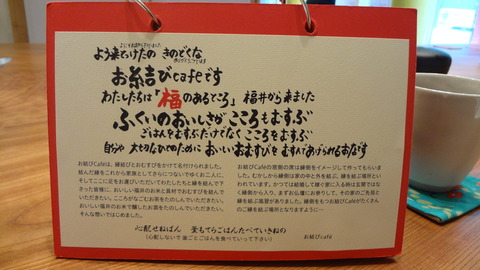 よう来とっけたの きのどくな
お糸結びcaféです
わたしたちは「福のあるところ」福井から来ました
ふくいのおいしさが こころもむすぶ
ごはんをむすぶだけでなく こころをむすぶ
自分や 大切なひとのために おいしいおむすびを むすんであげられるお店です
お結びCaféは、縁結びとおむすびをかけて名付けられました。
結んだ縁をこれから家族としてさらにつないでゆくお二人に、
そしてここに足をお運びいただいてわたしたちと縁を結んで下
さった皆様に、おいしい福井のお米と具材でおむすびを結んで
いただきたい。こころがなごむお茶をたのしんでいただきたい。
おいしい福井のお米で醸したお酒をたのしんでいただきたい。
そんな想いではじめました。
お結びCaféの窓側の席は縁側をイメージして作ってもらいま
した。むかしから縁側は家の中と外を結ぶ、縁を結ぶ場所とい
われています。かつては結婚して嫁ぐ家に入る時は玄関ではな
く縁側から入り、まずお仏壇にお参りして、その家のご先祖と
縁を結ぶ風習がありました。縁側をもつお結びCaféがたくさん
のご縁を結ぶ場所となりますように…
心配せねばん 釜もてらごはんたべていきねの
(心配しないで 釜ごとごはんを食べていって下さい)
お結びcafé